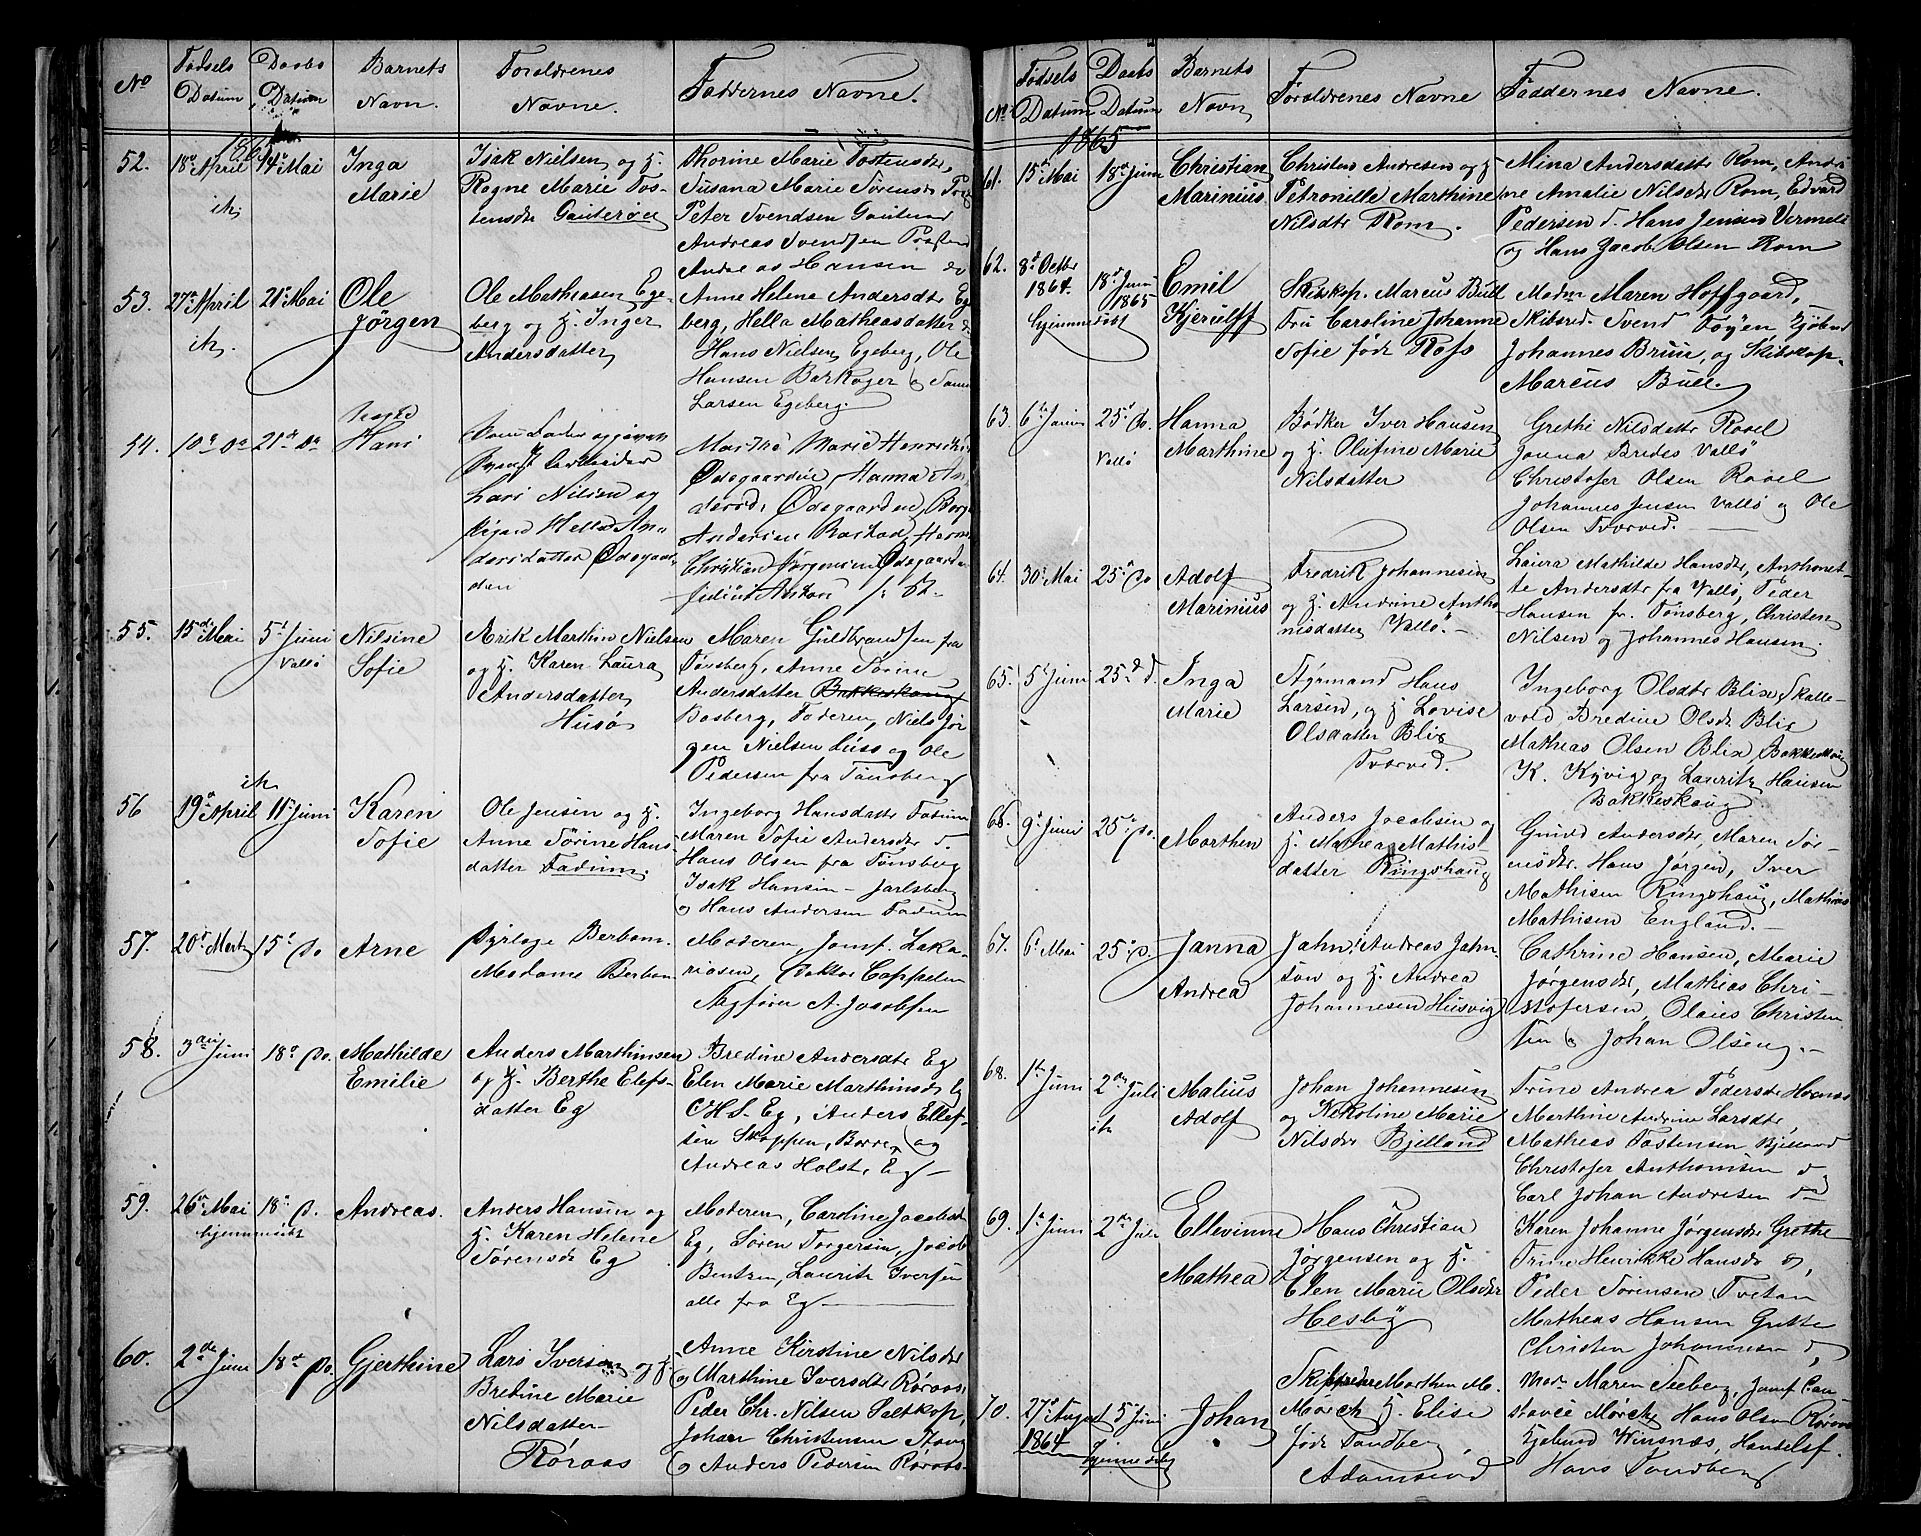 No
Fødsels
Datum
Daabs
Datum
Barnets
Navn.
Foraldrenes
Navne.
Faddernes Navne.
52.
18de April
ik.
14de Mai
Inga
Marie
Isak Nielsen og H.
Ragne Marie Tos-
tensdr Gauterøen
Thorine Marie Tostensdr,
Susana Marie Sørensdr
Peter Svendsen
Andreas Svendsen
Andreas Hansen do
53.
27de April
ik.
21de Mai
Ole
Jørgen
Ole Mathiasen Ege-
berg og H. Inger
Andersdatter
Anne Helene Andersdtr Eg
berg, Hella Matheasdatter
Hans Nielsen Egeberg, Ole
Hansen Barkager &
Larsen Egeberg.
54.
10de do
21de do
Hans
Lars Nilsen og
Pigen Hella An-
dersdatter Ødegaar-
den
Marthe Marie Henriks
Ødegaarden, Hanna An-
dersd. Ødegaarden, Borge
Andersen
Christian Jørgensen Ødegaarden
55.
15de Mai
5te Juni
Vallø
Nilsine
Sofie
Arik Marthin Nielsen
og H. Karen Laura
Andersdatter
Husø
Maren Guldbrandsen fra
Tønsberg, Anne Sørine
Andersdatter Bakkeskaug
Basberg, Faderen, Niels Jør
gen Nielsen og Ole
Pedersen fra Tønsberg
56
ik.
19de April
11te Juni
Karen
Sofie
Ole Jensen og H.
Anne Sørine Hans
datter Fadum.
Ingeborg Hansdatter Fadum
Maren Sofie Andersdtr d.
Hans Olsen fra Tønsberg
Isak Hansen - Jarlsberg
og Hans Andersen Fadum
57.
20de Marts
15de do
Arne
Berbom.
Madame Berbom
Moderen, Jomf. Zaka-
riasen, Doktor Cappelen
A. Jacobsen
58.
3die Juni
18de do.
Mathilde
Emilie
Anders Marthinsen
og H. Berthe Elefs-
datter Eg
Bredine Andersdtr Eg
Elen Marie Marthinsdr Eg
C. H. S. Eg, Anders Ellef-
sen Skoppen, Borre, og
Andreas Holst, Eg
59.
26de Mai
hjemmedøbt
18de d.
Andreas.
Anders Hansen og
H. Karen Helene
Sørensdr Eg
Moderen, Caroline Jacobsdr
Eg, Søren Torgersen, Jacob
Bentsen, Lauritz Iversen
alle fra Eg
60.
2den Juni
18de do.
Gjerthine
Lars Iversen og H.
Bredine Marie
Nilsdatter
Røraas
Anne Kirstine Nilsdtr
og Marthine Iversdtr Røraas,
Peder Chr. Nilsen Saltkop,
Johan Christensen
og Anders Pedersen Røraas
No
Fødsels
Datum
Daabs
Datum
Barnets
Navn
Foraldrenes Navne
Faddernes Navne.
1865
61.
15de Mai
18de Juni
Christian
Marinius
Christen Andresen og H.
Petronille Marthine
Nilsdtr Rom.
Mina Andersdatter Rom, Andri
ne Amalie Nilsdtr Rom, Edvard
Pedersen d. Hans Jensen Vermele
og Hans Jacob Olsen Rom
62.
8de Octbr
1864.
hjemmedøbt
18de Juni
1865
Emil
Kjerulff
Skibskap. Marcus Bull
Fru Caroline Johanne
Sofie født Rofs
Madm Maren Hoffgaard,
Skibsred. Svend Føyen, Kjøbmd
Johannes Bruun, og Skibskap-
Marcus Bull
63.
6te Juni
25de do.
Vallø
Hanna
Marthine
Bødker Iver Hansen
og H. Olufine Marie
Nilsdatter
Grethe Nilsdatter Ravel
Janna Bredes Vallø
Christofer Olsen Ravel
Johannes Jensen Vallø og Ole
Olsen Tvørved.
64.
30te Mai
25de do
Adolf
Marinius
Fredrik Johannesen
og H. Andrine Antho
nisdatter Vallø.
Laura Mathilde Hansdtr, Anthonet-
te Andersdtr fra Vallø, Peder
Hansen fr. Tønsberg, Christen
Nilsen og Johannes Hansen.
65.
5te Juni
25de d.
Inga
Marie
Styrmand Hans
Larsen, og H. Lovise
Olsdatter Blix
Tvørved.
Ingeborg Olsdtr Blix, Skalle-
vold, Bredine Olsdr Blix
Mathias Olsen Blix, Bakkeskaug
K. Kjvig og Lauritz Hansen
Bakkeskaug
66.
9de Juni
25de do.
Marthen
Anders Jacobsen og
H. Mathea Mathis-
datter Ringshaug
Gunild Andersdtr, Maren Sør-
ensdtr. Hans Jørgen, Iver
Mathisen Ringshaug, Mathias
Mathisen England.
67.
6te Mai
25de do.
Janna
Andrea
Jahn Andreas Jahn-
son og H. Andrea
Johannesen Husvig
Cathrine Hansen, Marie
Jørgensdtr, Mathias Chri-
stofersen, Olaus Christen
sen & Johan Olsen.
68.
1te Juni
2den Juli
ik
Malius
Adolf
Johan Johannesen
og Nekoline Marie
Nilsdtr Bjelland
Trine Andrea Pedersdtr Hornæs
Marthine Andrine Larsdtr,
Mathias Tostensen Bjelland
Christofer Anthonisen d
Carl Johan Andresen do
69.
1te Juni
2den Juli
Ellevinne
Mathea
Hans Christian
Jørgensen og H.
Elen Marie Olsdtr
Hesby
Karen Johanne Jørgensdtr Grette
Trine Henrikke Hansdr d,
Peder Sørensen Tvetan
Mathias Hansen Grette
Christen Johannesen d,
70.
27de August
1864
5te Juni
hjemmedøbt
Johan
Skipper Marthen M.
Mørch H. Elise
født Sandberg,
Adamsrød
Mad. Maren Seeberg, Jomf. Gu-
stava Mørch, Hans Olsen Røraas
Kjøbmd Winsnæs, Handelsf.
Hans Sandberg